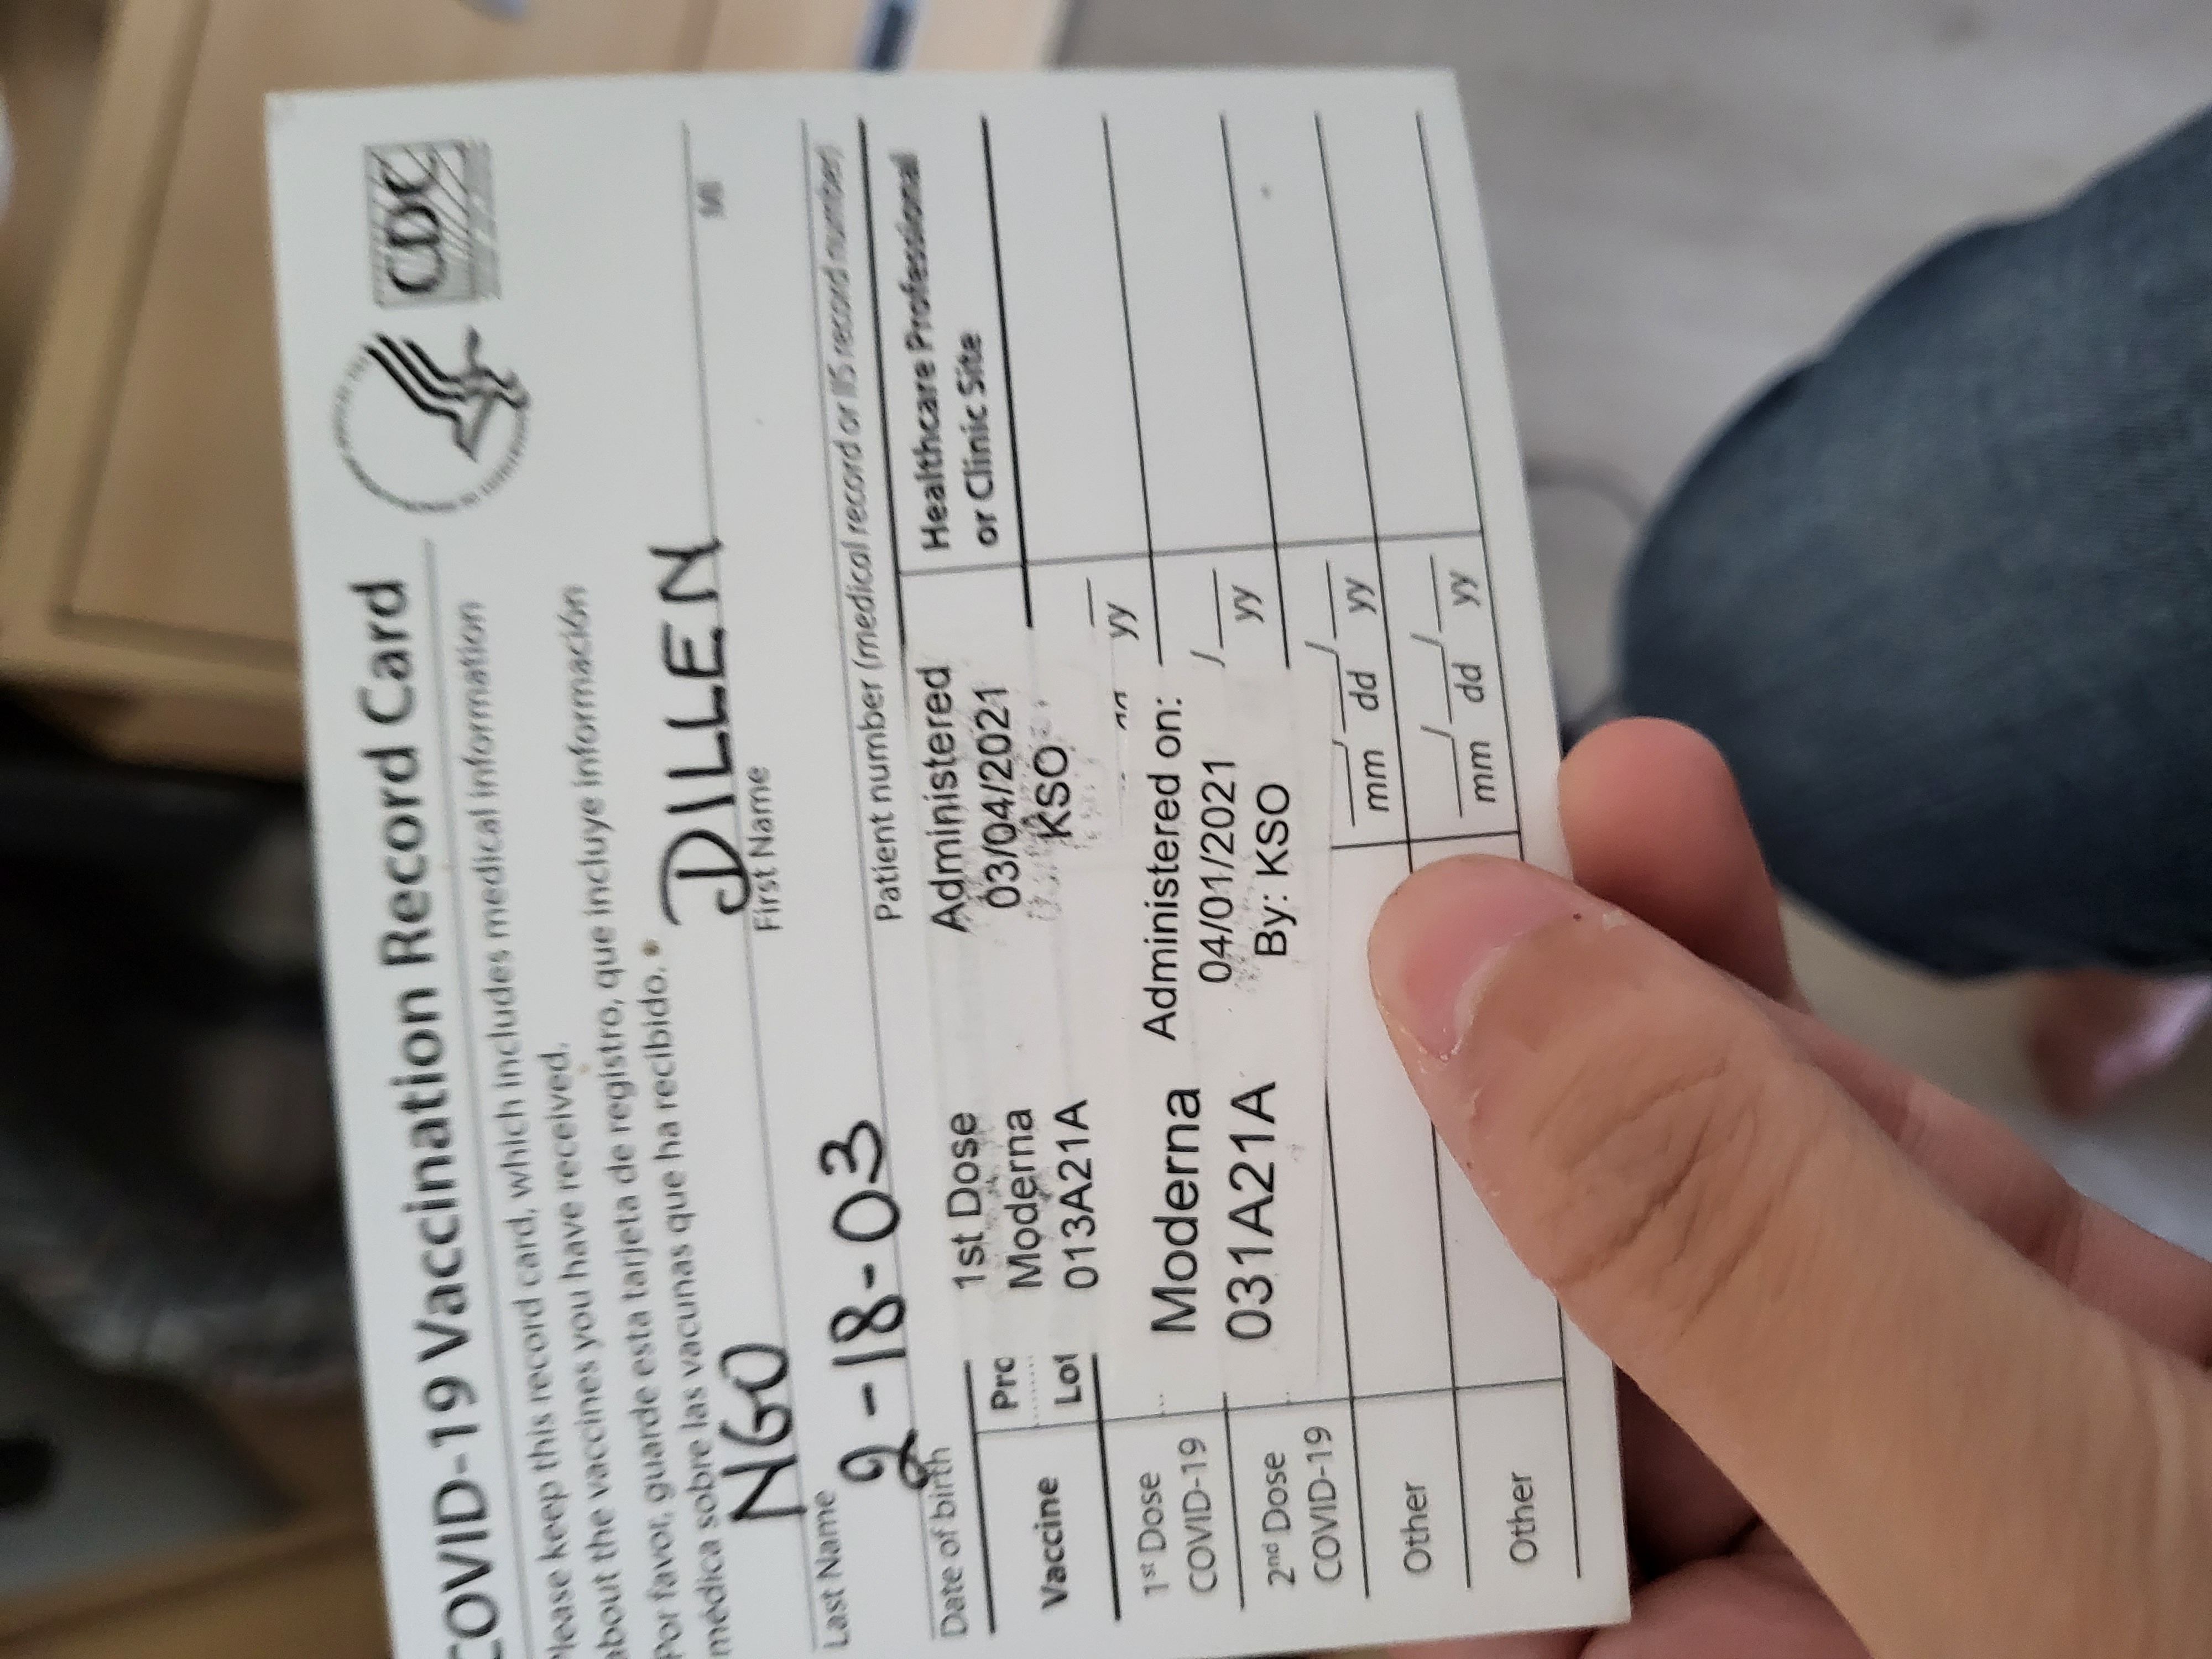 COVID-19 Vaccination Record Card
CDC
Please keep this record card, which includes medical information
about the vaccines you have received.
Por favor, guarde esta tarjeta de registro, que incluye información
médica sobre las vacunas que ha recibido.
NGO DILLEN
Last Name First Name MI
2-18-03
Date of birth Patient number (medical record or IIS record number)
Vaccine
Pro
Lot
1st Dose
Moderna
013A21A
Administered
03/04/2021
KSO
Healthcare Professional
or Clinic Site
1st Dose
COVID-19
yy
Moderna
031A21A
Administered on:
04/01/2021
By: KSO
2nd Dose
COVID-19
/ yy
Other
/ /
mm dd yy
Other
/ /
mm dd yy